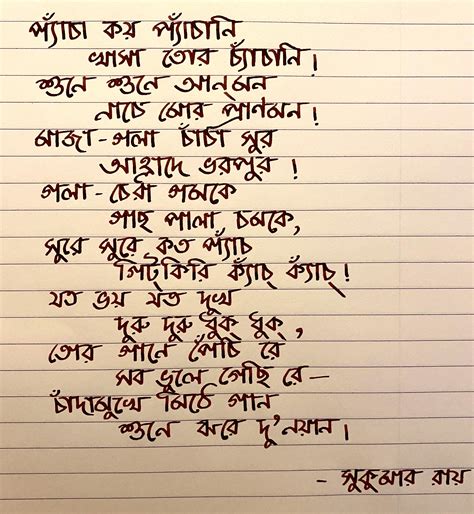 প্যাঁচা কয় প্যাঁচানি
খাসা তোর চ্যাঁচানি।
শুনে শুনে আন্‌মন
নাচে মোর প্রাণমন!
মাজা-গলা চাঁচা সুর
আহ্লাদে ভরপুর!
গলা-চেরা গমকে
গাছ পালা চমকে,
সুরে সুরে কত প্যাঁচ
গিট্‌কিরি ক্যাঁচ্ ক্যাঁচ্!
যত ভয় যত দুখ
দুরু দুরু ধুক্ ধুক্,
তোর গানে পেঁচি রে
সব ভুলে গেছি রে—
চাঁদামুখে মিঠে গান
শুনে ঝরে দু'নয়ান।
- সুকুমার রায়